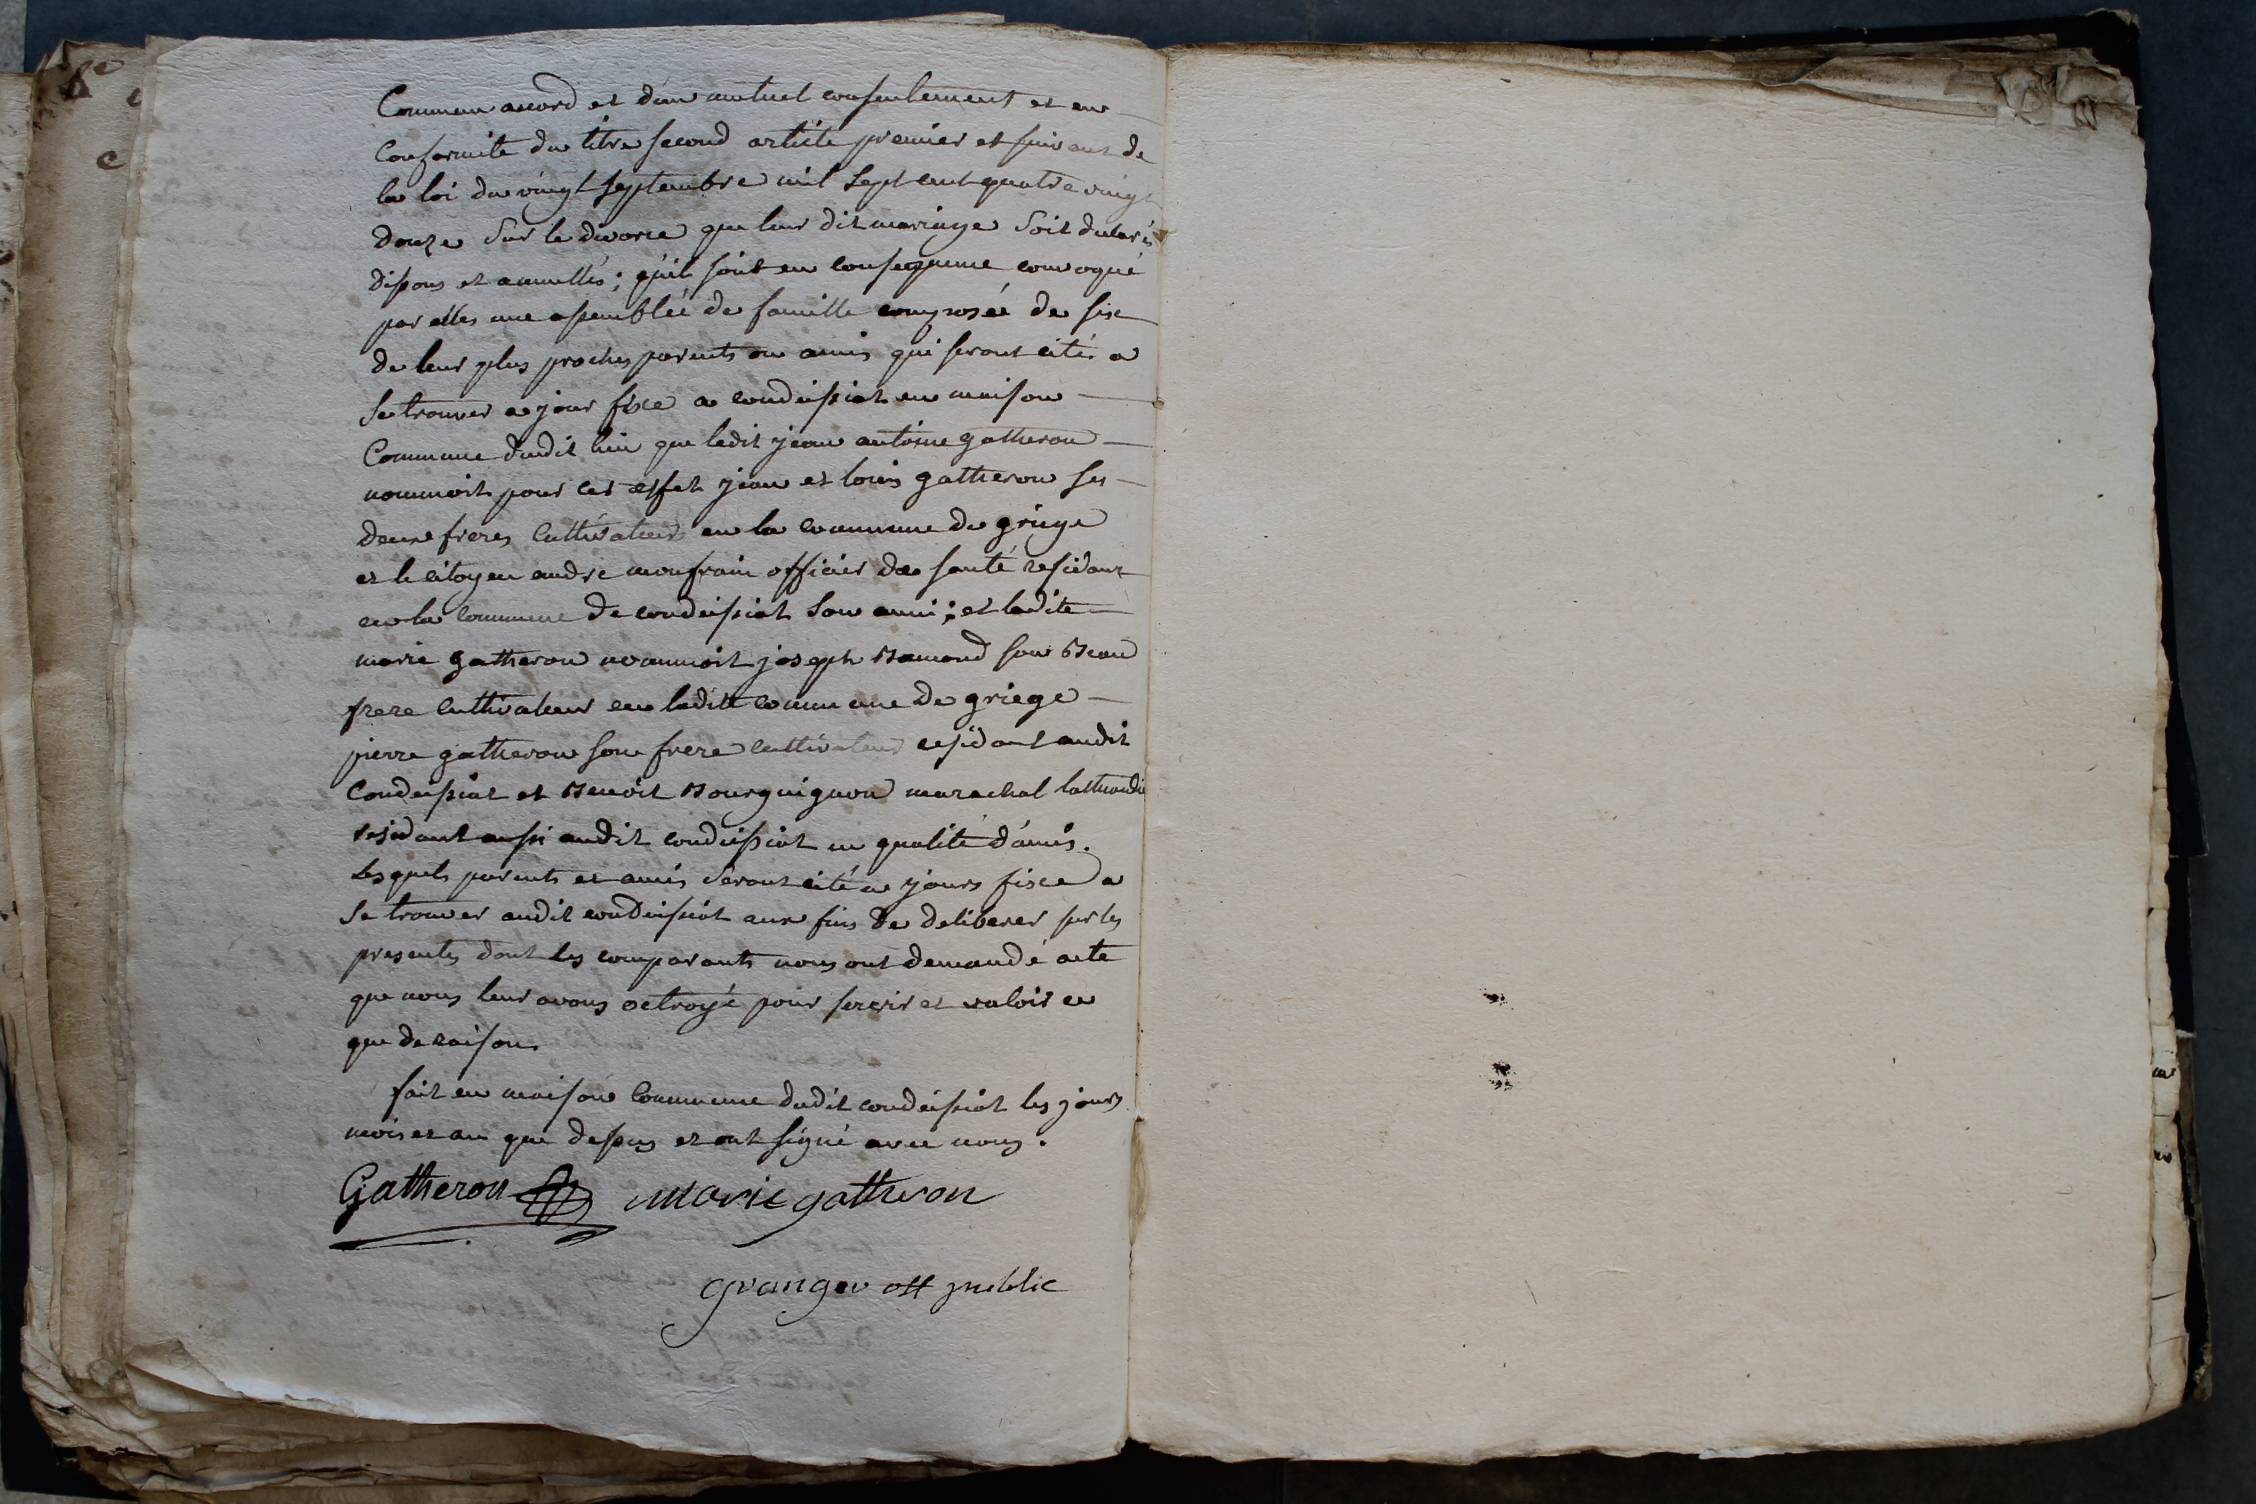 Commun accord et d'un mutuel consentement et en
Conformité du titre second article premier et suivant de
la loi du vingt septembre mil sept cent quatre vingt
douze sur le divorce que leur dit mariage soit declarés
dissous et annullés; qu'il soit en consequence convoqué
par elles une assemblée de famille composée de six
de leur plus proches parents ou amis qui seront cités a
se trouver a jour fixe a condeissiat en maison
Commune dudit lieu que ledit jean antoine gatheron
nommoit pour cet effet jean et louis gatheron ses
deux freres Cultivateurs en la commune de griege
et le citoyen andre monfrain officier de santé residant
en la commune de condeissiat son ami; et ladite
marie gatheron nommoit joseph Bamond son Beau
frere Cultivateur en ladite commune de griege
pierre gatheron son frere cultivateur residant audit
Condeissiat et Benoit Bourguignon marechal
residant aussi audit condeissiat en qualité d'amis.
Lesquels parents et amis seront cité a jours fixe a
se trouver audit condeissiat aux fins de deliberer sur les
presentes dont les comparants nous ont demandé acte
que nous leur avons octroyé pour servir et valoir ce
que de raison.
fait en maison Commune dudit condeissiat les jours
mois et an que dessus et ont signé avec nous.
Gatheron marie gatheron
granger off public